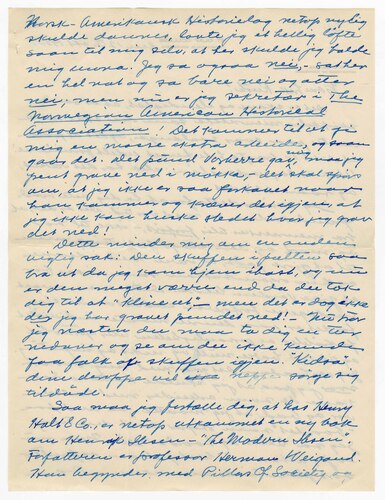 Norsk-Amerikansk Historielag netop nylig
skulde dannes, lovte jeg et hellig løfte
saan til mig selv, at her skulde jeg holde
mig unna. Jeg sa ogsaa nei, - sat her
en hel nat og sa bare nei og atter
nei; men nu er jeg sekretær i The
Norwegian American Historical
Association! Det kommer til at gi
mig en masse ekstra arbeide, og saan
gaar det. Det pund Vorherre gav mig, maa jeg
pent grave ned i møkka; det skal spørs
om, at jeg ikke er saa forkavet naar
han kommer og kræver det igjen, at
jeg ikke kan huske stedet hvor jeg grov
det ned!
Dette minder mig om en anden
vigtig sak: Den skuffen i
bra ut da jeg kom hjem ihøst, og nu
er den meget værre end da du tok
dig til at "kline ut" - men det er dog ikke
der jeg har gravet pundet ned! - Nu tror
jeg næsten du maa ta dig en tur
nedover og se om du ikke kunde
faa folk af skuffen igjen. "Kidsa"
dine deroppe vil neppe sørge sig
tildøde.
Saa maa jeg fortælle dig, at hos Henry
Holt & Co. er netop utkommet en ny bok
om Henrik Ibsen - "The Modern Ibsen".
Forfatteren er professor Herman Weigand.
Han begynder med Pillars Of Society og